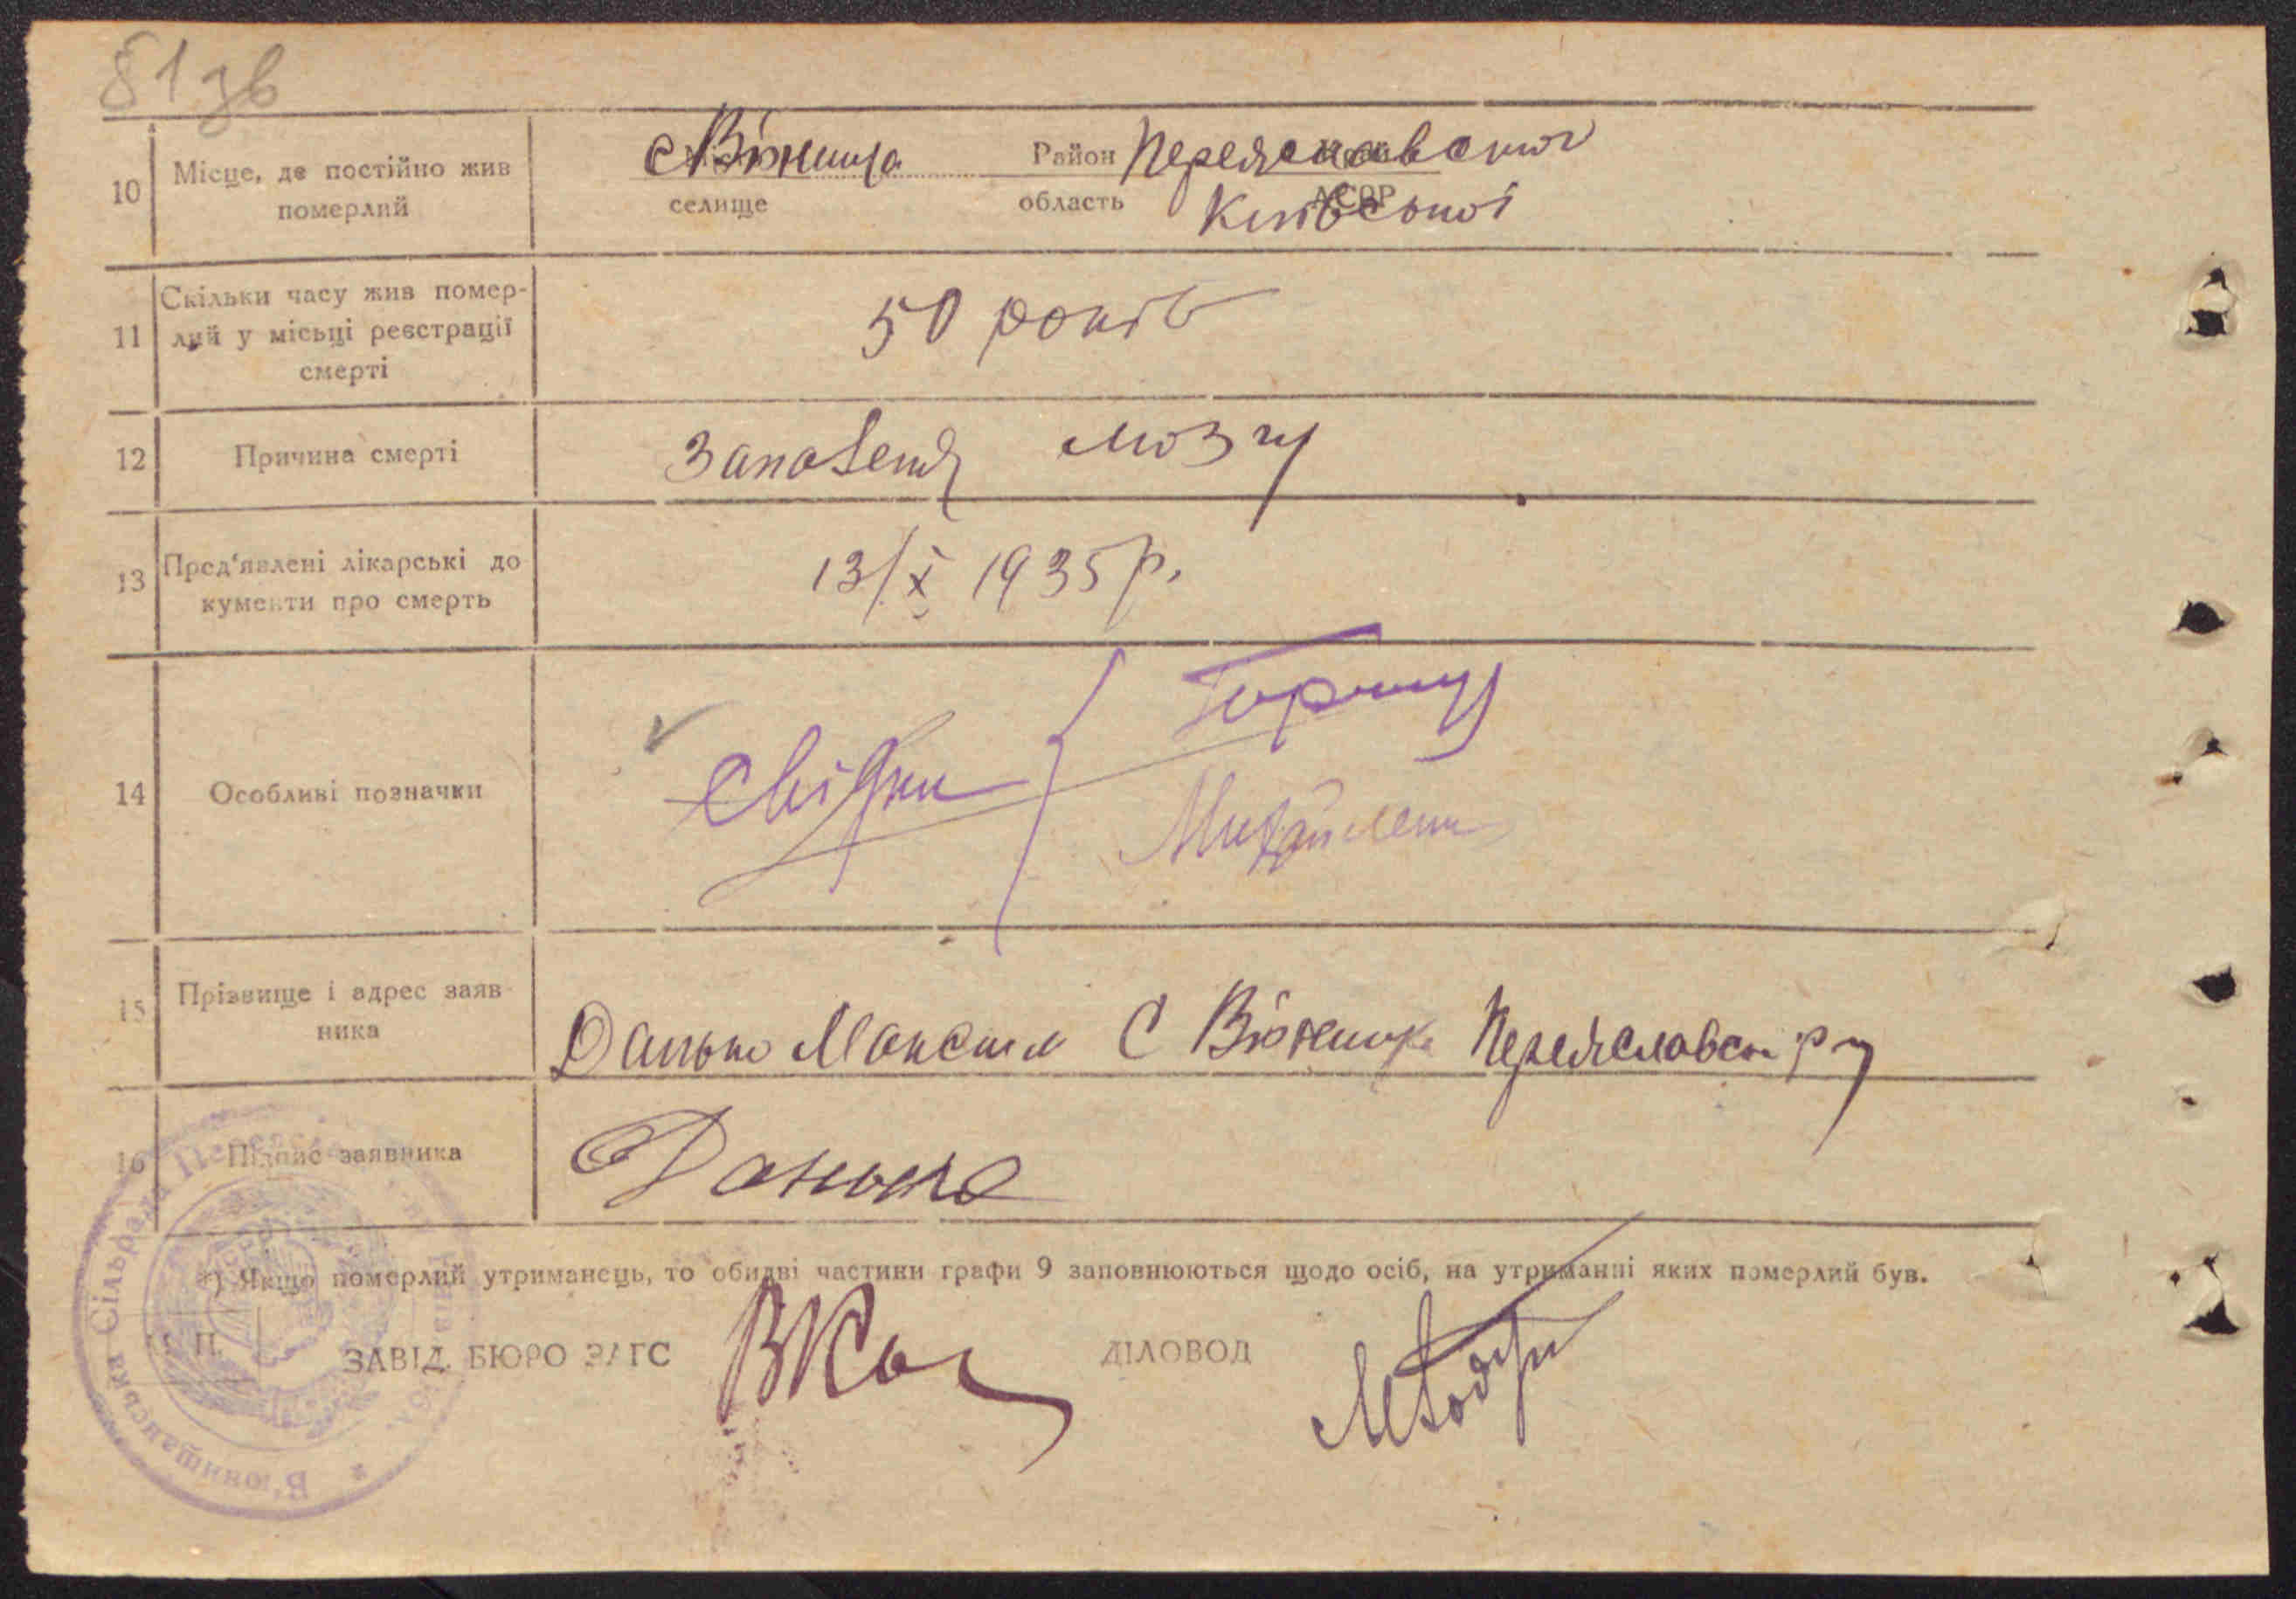 81 зв
10 Місце, де постійно жив померлий
с В'юнища Район Переяславської
селище область АСРР Київської
11 Скільки часу жив помер-
лий у місьці реєстрації
смерті
50 років
12 Причина смерті
Запалення мозгу
13 Пред'явлені лікарські до
кументи про смерть
13/X 1935 р.
14 Особливі позначки
Свідки
Михайленко
15 Прізвище і адрес заяв-
ника
Данько Максим С В'юнища Переяславськ р ну
16 Підпис заявника
Данько
*) Якщо померлий утриманець, то обидві частини графи 9 заповнюються щодо осіб, на утриманні яких померлий був.
М. П.
ЗАВІД. БЮРО ЗАГС
ДІЛОВОД
В'юнищанська Сільрада